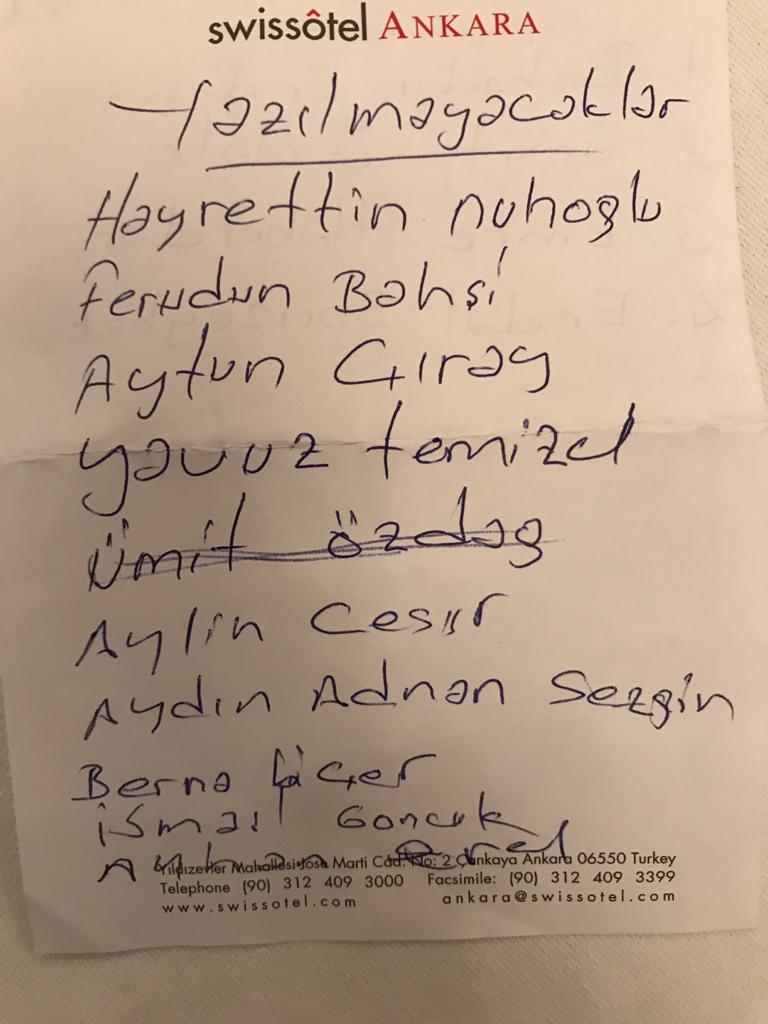 swissôtel ANKARA
Yazılmayacaklar
Hayrettin nuhoglu
ferudun Bahşi
Aytun Çıray
yavuz temizel
Ümit özdag
Aylin Cesur
Aydın Adnan Sezgin
Berna
ismail Goncuk
Ayhan Erel
Yıldızevler Mahallesi Jose Marti Cad. No: 2 Çankaya Ankara 06550 Turkey
Telephone (90) 312 409 3000 Facsimile: (90) 312 409 3399
www.swissotel.com ankara@swissotel.com